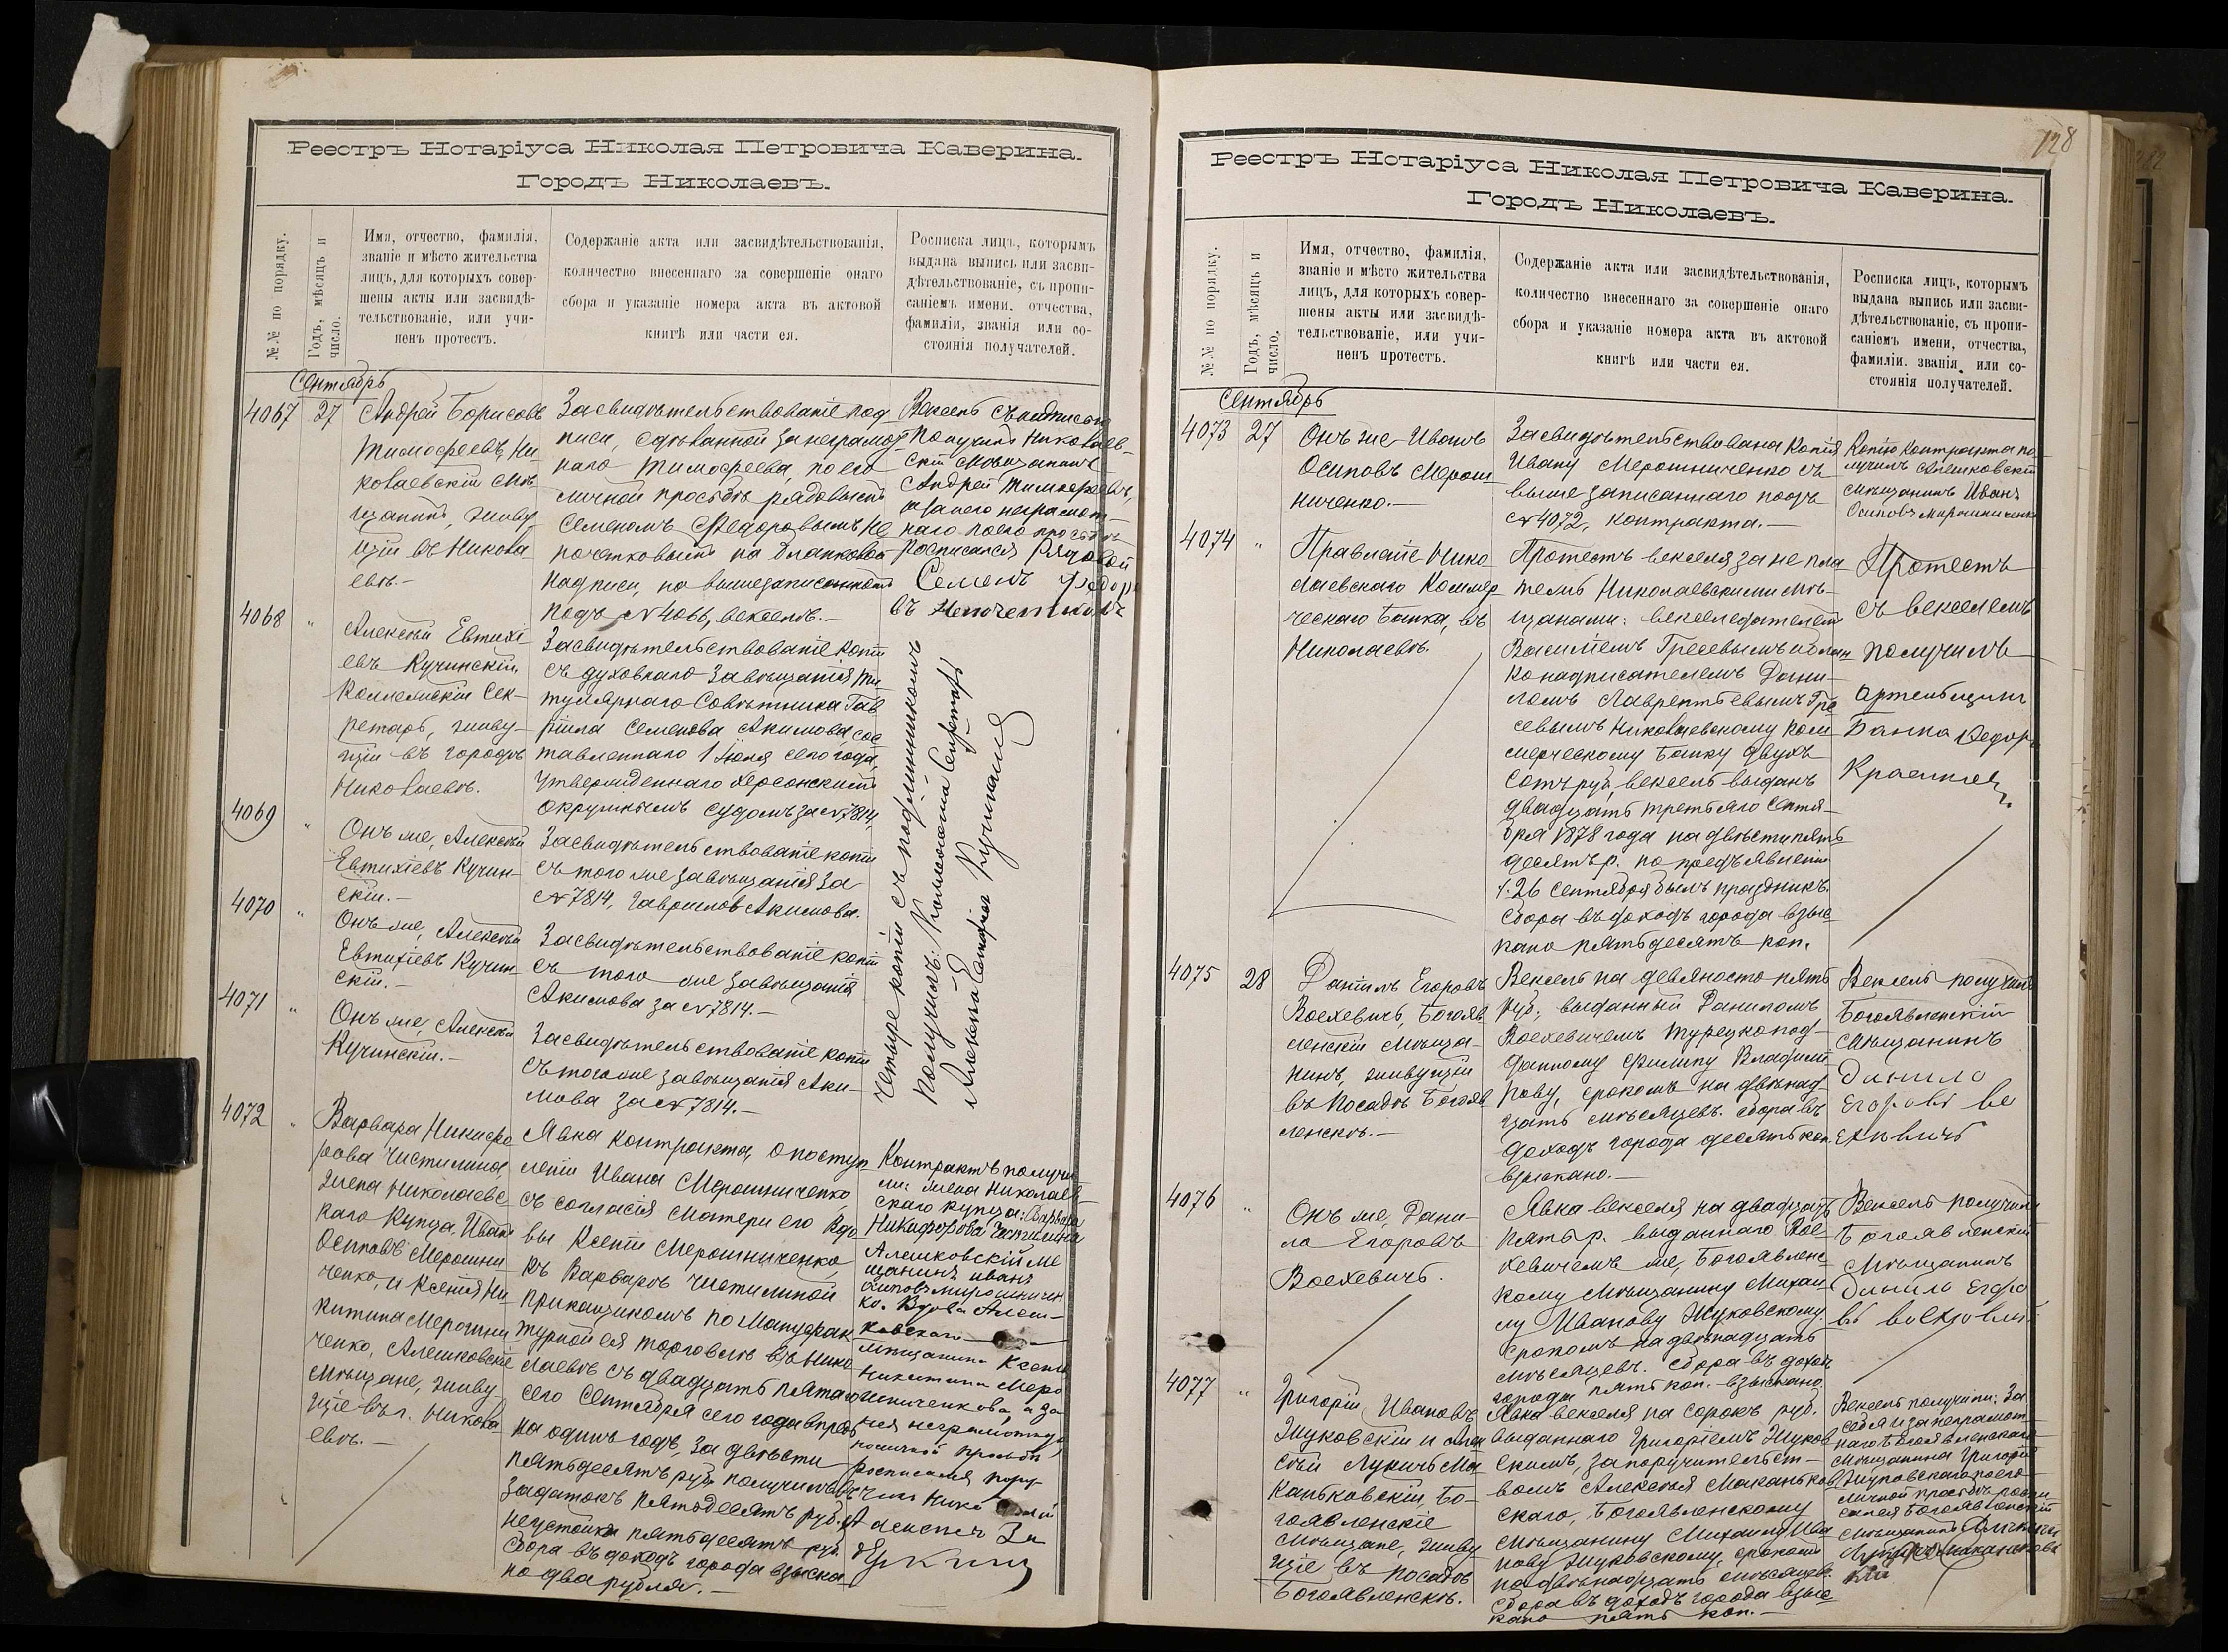 Реестръ Нотаріуса Николая Петровича Каверина.
Городъ Николаевъ.
№№ по порядку.
Годъ, мѣсяцъ и
число.
Имя, отчество, фамилія,
званіе и мѣсто жительства
лицъ, для которыхъ совер-
шены акты или засвидѣ-
тельствованіе, или учи-
ненъ протестъ.
Содержаніе акта или засвидѣтельствованія,
количество внесеннаго за совершеніе онаго
сбора и указаніе номера акта въ актовой
книгѣ или части ея.
Росписка лицъ, которымъ
выдана выпись или засви-
дѣтельствованіе, съ пропи-
саніемъ имени, отчества,
фамиліи, званія или со-
стоянія получателей.
Сентябрь
4067
27
Андрей Борисовъ
Тимофеевъ, Ни-
колаевскій мѣ-
щанинъ, живу-
щій въ Никола-
евѣ.-
Засвидѣтельствованіе под-
писи, сдѣланной за неграмот-
наго Тимофеева, по его
личной просьбѣ рядовымъ
Семеномъ Федоровымъ Не
початковымъ на бланковой
надписи, на вышезаписанномъ
подъ №4066, векселѣ.-
Вексель съ надписью
получилъ Николаев-
скій мѣщанинъ
Андрей Тимофеевъ,
а за него неграмот-
наго по его просьбѣ
росписался рядовой
Семенъ Федоро
въ
4068
"
Алексѣй Евтихі-
евъ Кучинскій,
Коллежскій Сек-
ретарь, живу-
щій въ городѣ
Николаевѣ.
Засвидѣтельствованіе копіи
съ духовнаго завѣщанія Ти
тулярнаго Совѣтника Гав
ріила Семенова Акимова сос
тавленнаго 1 Іюля сего года,
утвержденнаго Херсонскимъ
Окружнымъ Судомъ за №7814,
4069
"
Онъ же, Алексѣй
Евтихіевъ Кучин-
скій.-
Засвидѣтельствованіе копіи
съ того же завѣщанія за
№7814, Гавріилова Акимова.
4070
"
Онъ же, Алексѣй
Евтихіевъ Кучин
скій.-
Засвидѣтельствованіе копіи
съ того же завѣщанія
Акимова за №7814.-
4071
"
Онъ же, Алексѣй
Кучинскій.-
Засвидѣтельствованіе копіи
съ того же завѣщанія Аки-
мова за №7814.-
Четыре копіи съ подлинникомъ
получилъ: Коллежскій Секретарь
Алексѣй Кучинскій
4072
"
Варвара Никифо
рова Чистилина,
жена Николаевс
каго Купца, Иванъ
Осиповъ Мерошни
ченко, и Ксенія Ни-
китина Мерошни
ченко, Алешковскіе
мѣщане, живу-
щіе въ г. Никола-
евѣ.-
Явка контракта, о поступ
леніи Ивана Мерошниченко,
съ согласія матери его вдо
вы Ксеніи Мерошниченко,
къ Варварѣ Чистилиной
прикащикомъ по Мануфак
турной ея торговлѣ въ Нико
лаевѣ съ двадцать пятаго
сего Сентября сего года впредь
на одинъ годъ, за двѣсти
пятьдесятъ руб. получилъ въ
задатокъ пятьдесятъ руб.
неустойки пятьдесятъ руб.
сбора въ доходъ города взыска
но два рубля.-
Контрактъ получи
ли: жена Николаев
скаго купца: Варвара
Никифорова Чистилина
Алешковскій ме
щанинъ иванъ
осиповъ мирошничен
ко. Вдова Алеш-
ковскаго
мѣщанина Ксенія
Никитина Меро
шниченкова, а за
нея неграмотную
по личной просьбѣ
росписался
128
Реестръ Нотаріуса Николая Петровича Каверина.
Городъ Николаевъ.
№№ по порядку.
Годъ, мѣсяцъ и
число.
Имя, отчество, фамилія,
званіе и мѣсто жительства
лицъ, для которыхъ совер-
шены акты или засвидѣ-
тельствованіе, или учи-
ненъ протестъ.
Содержаніе акта или засвидѣтельствованія,
количество внесеннаго за совершеніе онаго
сбора и указаніе номера акта въ актовой
книгѣ или части ея.
Росписка лицъ, которымъ
выдана выпись или засви-
дѣтельствованіе, съ пропи-
саніемъ имени, отчества,
фамиліи. званія или со-
стоянія получателей.
Сентябрь
4073
27
Онъ же Иванъ
Осиповъ Мерош
ниченко.-
Засвидѣтельствована копія
Ивану Мерошниченко съ
выше записаннаго подъ
№4072, контракта.-
Копію контракта по
лучилъ Алешковскій
мѣщанинъ Иванъ
Осиповъ Мирошниченко
4074
"
Правленіе Нико
лаевскаго Коммер
ческаго Банка, въ
Николаевѣ.
Протестъ векселя за не пла
тежъ Николаевскими мѣ-
щанами: векселедателемъ
Василіемъ Гресевымъ и блан
ко надписателемъ Дани-
ломъ Лаврентьевымъ Гре
севымъ Николаевскому Ком-
мерческому Банку двухъ
сотъ руб, вексель выданъ
двадцать третьяго Сентя-
бря 1878 года на двѣсти пять
десятъ р. по предъявленіи
26 Сентября былъ праздникъ.
Сбора въ доходъ города взыс
кано пятьдесятъ коп.
Протестъ
съ векселемъ
получилъ
Артельщикъ
Банка Федоръ
4075
28
Данилъ Егоровъ
Воехевичъ, Богояв
ленскій мѣща-
нинъ, живущій
въ посадѣ Богояв
ленскѣ.-
Вексель на девяносто пять
руб., выданный Даниломъ
Воехевичемъ Турецкопод-
данному Филипу Владими
рову, срокомъ на двѣнад-
цать мѣсяцевъ. сбора въ
доходъ города десять коп.
взыскано.-
Вексель получилъ
Богоявленскій
мѣщанинъ
Данило
Егоровъ
4076
"
Онъ же, Дани-
ло Егоровъ
Воехевичъ.
Явка векселя на двадцать
пять р. выданнаго Вое-
хевичемъ же, Богоявленс-
кому мѣщанину Михаи
лу Иванову Жуковскому,
срокомъ на двѣнадцать
мѣсяцевъ. сбора въ доходъ
города пять коп. взыскано.
Вексель получилъ
Богоявленскій
мѣщанинъ
Данилъ Егоро
въ
4077
"
Григорій Ивановъ
Жуковскій и Алек
сѣй Лукичъ Ма
каньковскій, Бо-
гоявленскіе
мѣщане, живу
щіе въ посадѣ
Богоявленскѣ.
Явка векселя на сорокъ руб.
выданнаго Григоріемъ Жуков
скимъ, за поручительст-
вомъ Алексѣя Маканьков
скаго, Богоявленскому
мѣщанину Михаилу Ива
нову Жуковскому, срокомъ
на двѣнадцать мѣсяцевъ.
сбора въ доходъ города взыс
кано пять коп.-
Вексель получили: За
себя и за неграмот
наго Богоявленскаго
мѣщанина Григорія
Жуковскаго по его
личной просьбѣ роспи
сался Богоявленскій
мѣщанинъ